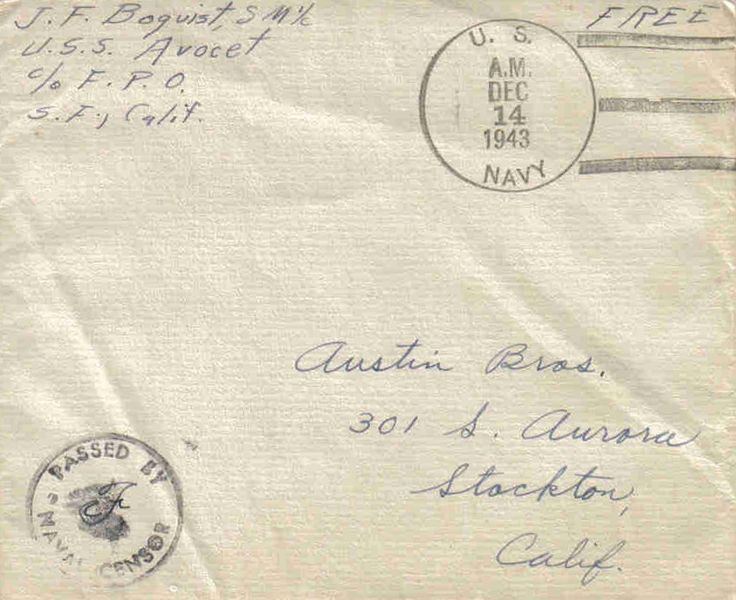 J. F. Boquist, SM 1/c
U.S.S. Avocet
c/o F.P.O.
S.F., Calif.
FREE
U. S.
A.M.
DEC
14
1943
NAVY
Austin Bros.
301 S. Aurora
Stockton,
Calif.
PASSED BY
NAVAL CENSOR